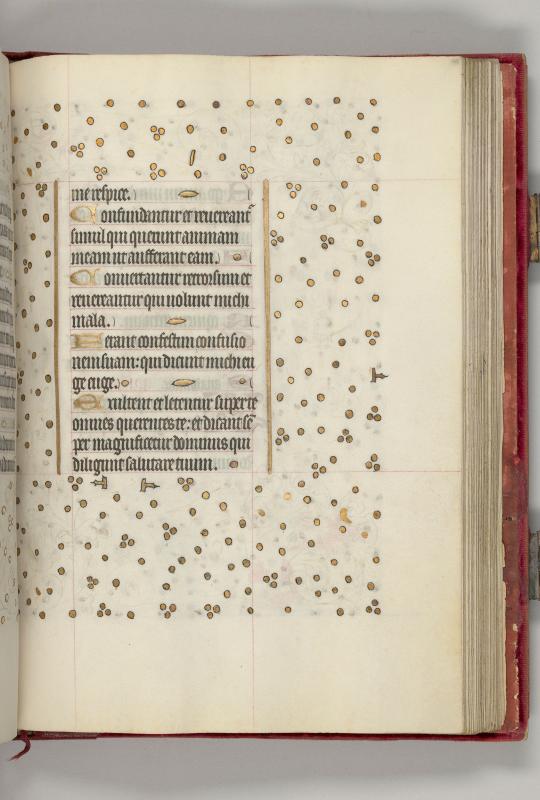 me respice.
Confundantur et reuereant̃
simul qui querunt animam
meam ut aufferant eam.
Conuertantur retrorsum et
reuereantur qui uolunt michi
mala.
Ferant confestim confusio
nem suam: qui dicunt michi eu
ge euge.
Exultent et letentur super te
omnes querentes te: et dicant sẽ
per magnificetur dominus qui
diligunt salutare tuum.